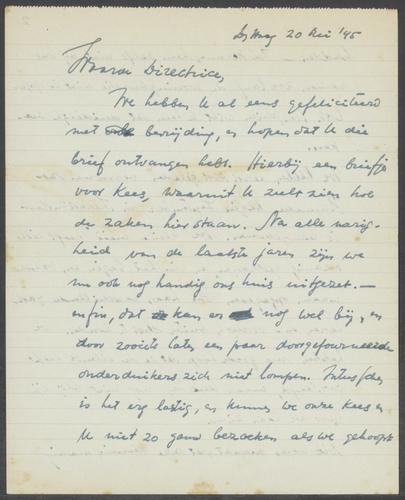 20 Mei '45
Waarde Directrice,
We hebben U al eens gefeliciteerd
met bevrijding, en hopen dat U die
brief ontvangen hebt. Hierbij een briefje
voor Kees, waaruit U zult zien hoe
de zaken hier staan. Na alle narig-
heid van de laatste jaren zijn we
nu ook nog handig ons huis uitgezet. —
enfin, dat kan er nog wel bij, en
door zooiets laten een paar doorgefourneerde
onderduikers zich niet lompen. Intusschen
is het erg lastig, en kunnen we onze Kees en
U niet zo gauw bezoeken als we gehoopt